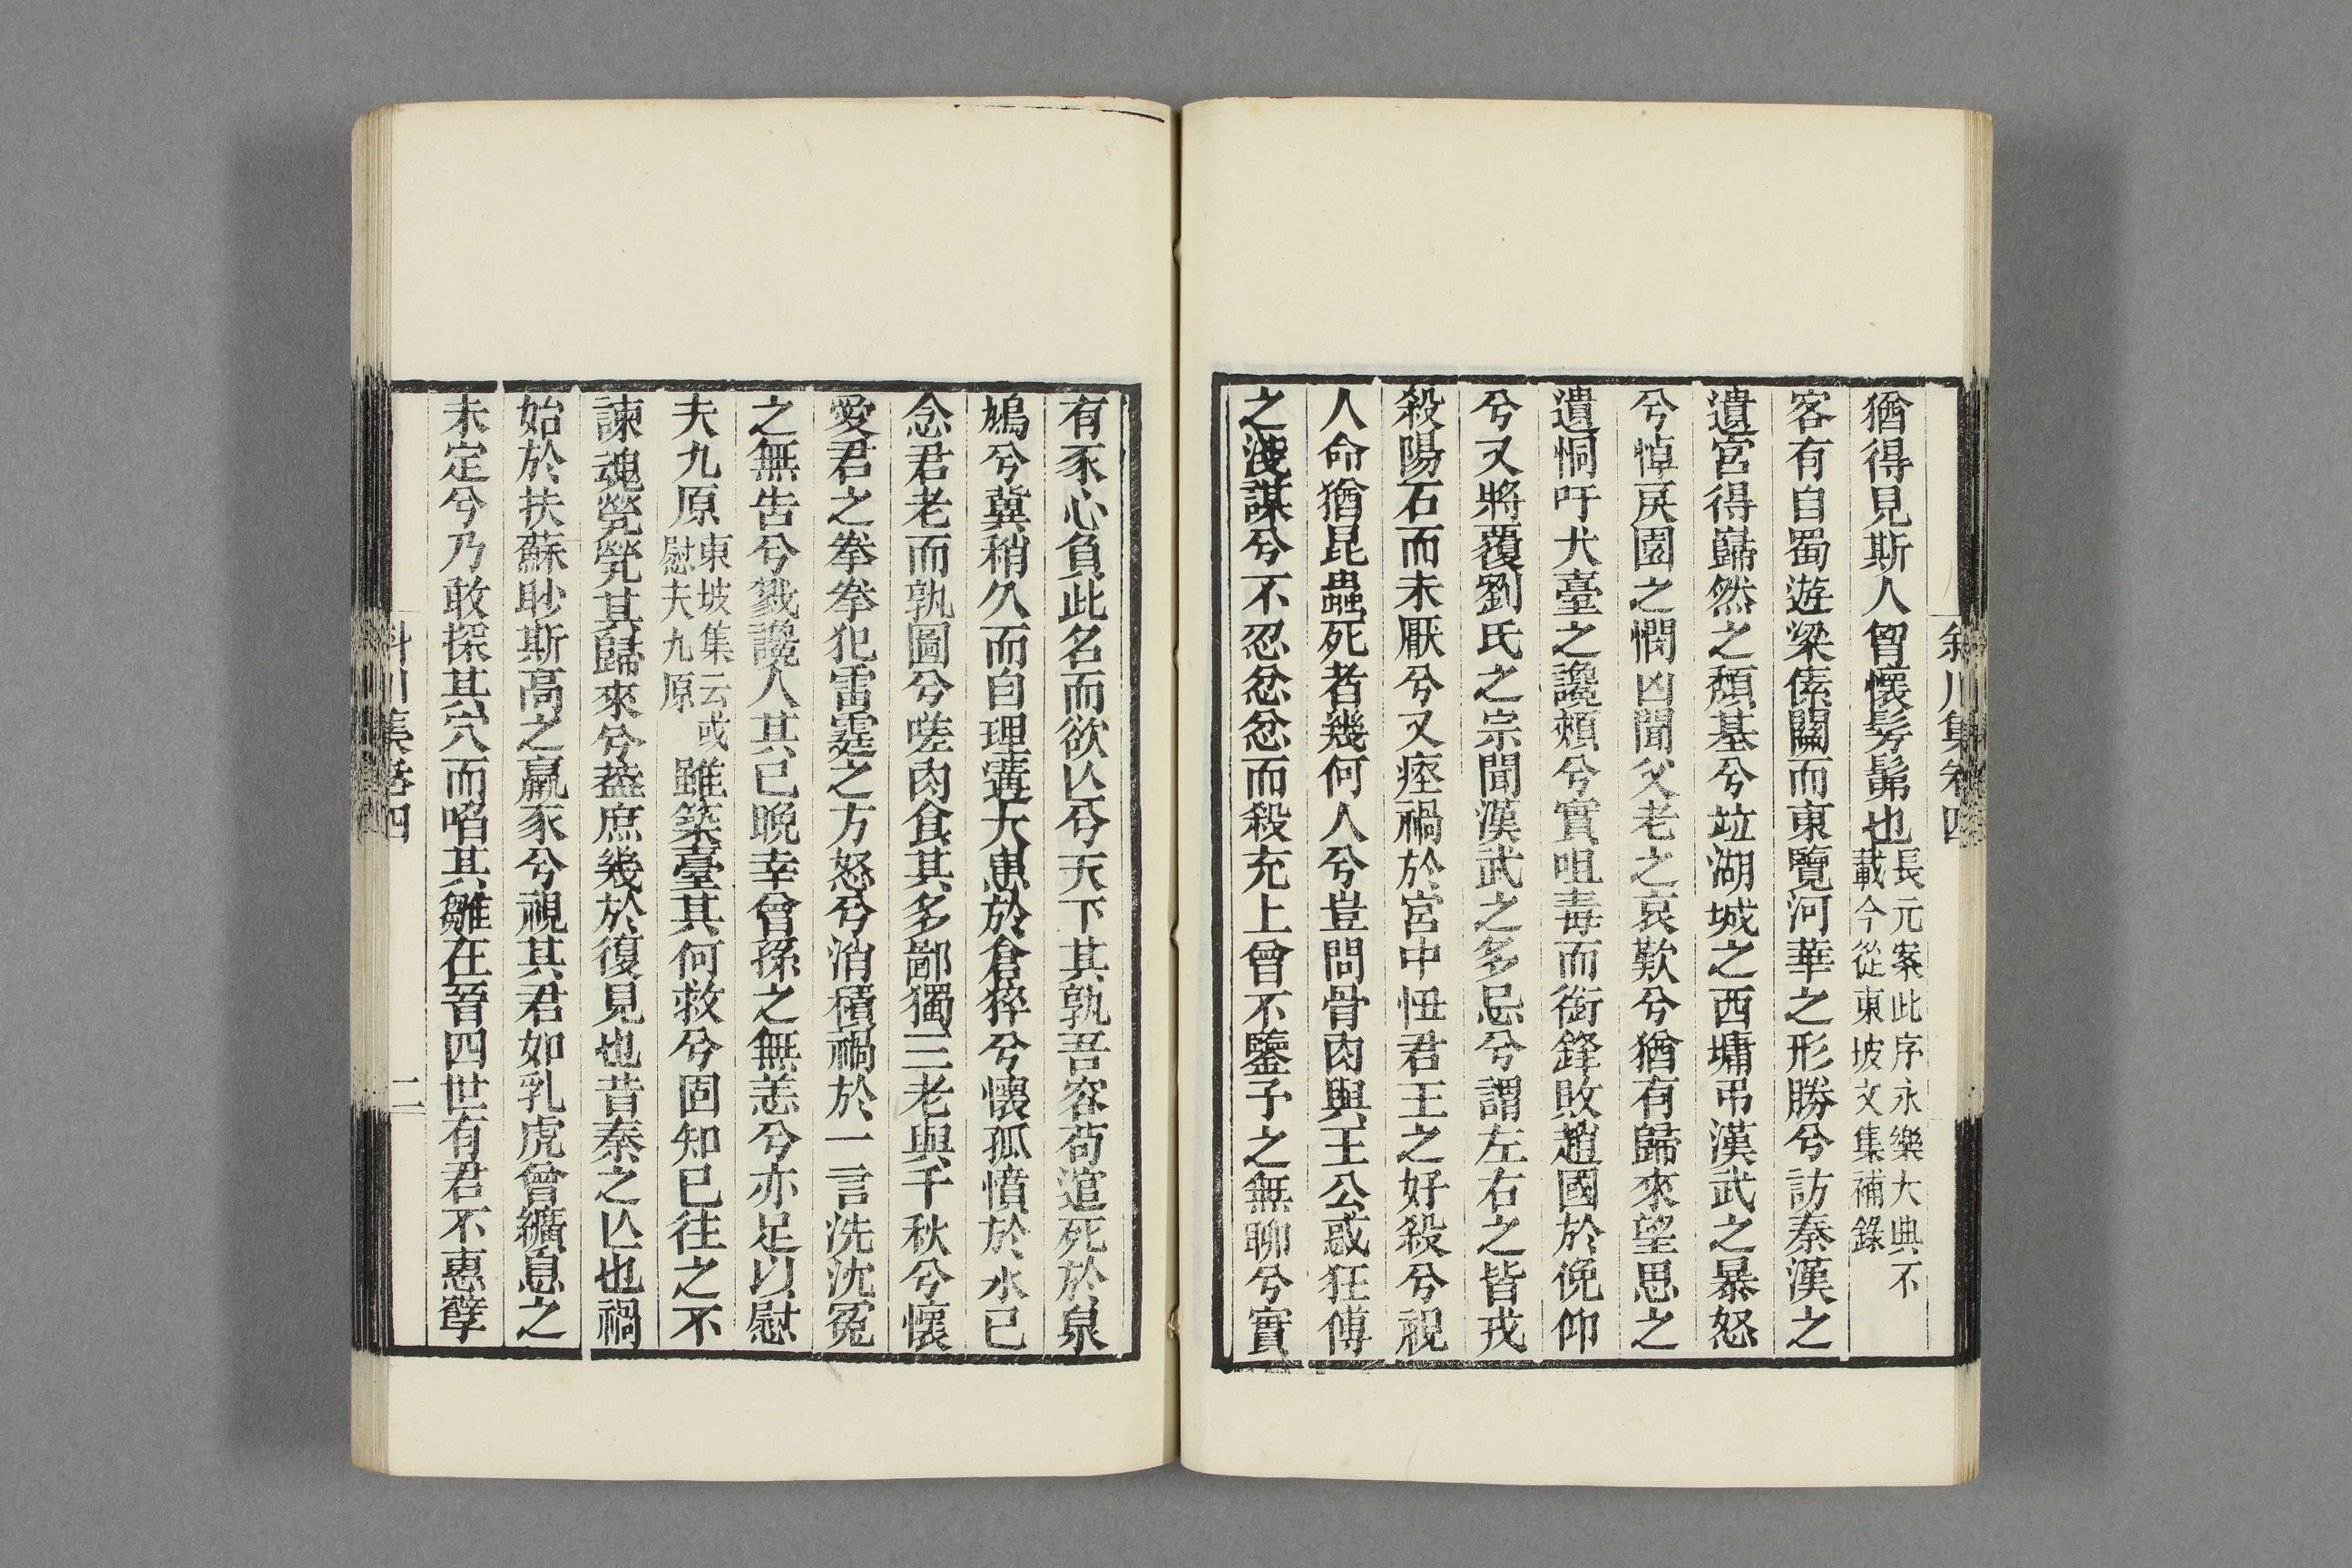 猶得見斯人胷懷髣髴也長元案此序永樂大典不
載今從東坡文集補錄
客有自蜀遊梁傃關而東覽河華之形勝兮訪秦漢之
遺宮得巋然之頹基兮竝湖城之西墉弔漢武之暴怒
兮悼戾園之憫凶聞父老之哀歎兮猶有歸來望思之
遺恫吁犬臺之讒頰兮實咀毒而銜鋒敗趙國於俛仰
兮又將覆劉氏之宗聞漢武之多忌兮謂左右之皆戎
殺陽石而未厭兮又瘞禍於宮中忸君王之好殺兮視
人命猶昆蟲死者幾何人兮豈問骨肉與王公惑狂傅
之淺謀兮不忍忿忿而殺充上曾不鑒子之無聊兮實
有豕心負此名而欲亾兮天下其孰吾容苟逭死於泉
鳩兮冀稍久而自理遘大患於倉猝兮懷孤憤於水已
念君老而孰圖兮嗟肉食其多鄙獨三老與千秋兮懷
愛君之拳拳犯雷霆之方怒兮消積禍於一言洗沈冤
之無告兮戮讒人其已晚幸曾孫之無恙兮亦足以慰
夫九原東坡集云或
慰夫九原雖築臺其何救兮固知已往之不
諫魂煢煢其歸來兮蓋庶幾於復見也昔秦之亾也禍
始於扶蘇眇斯高之羸豕兮視其君如乳虎曾纊息之
未定兮乃敢探其穴而啗其雛在晉四世有君不惠孽
斜川集卷四
二